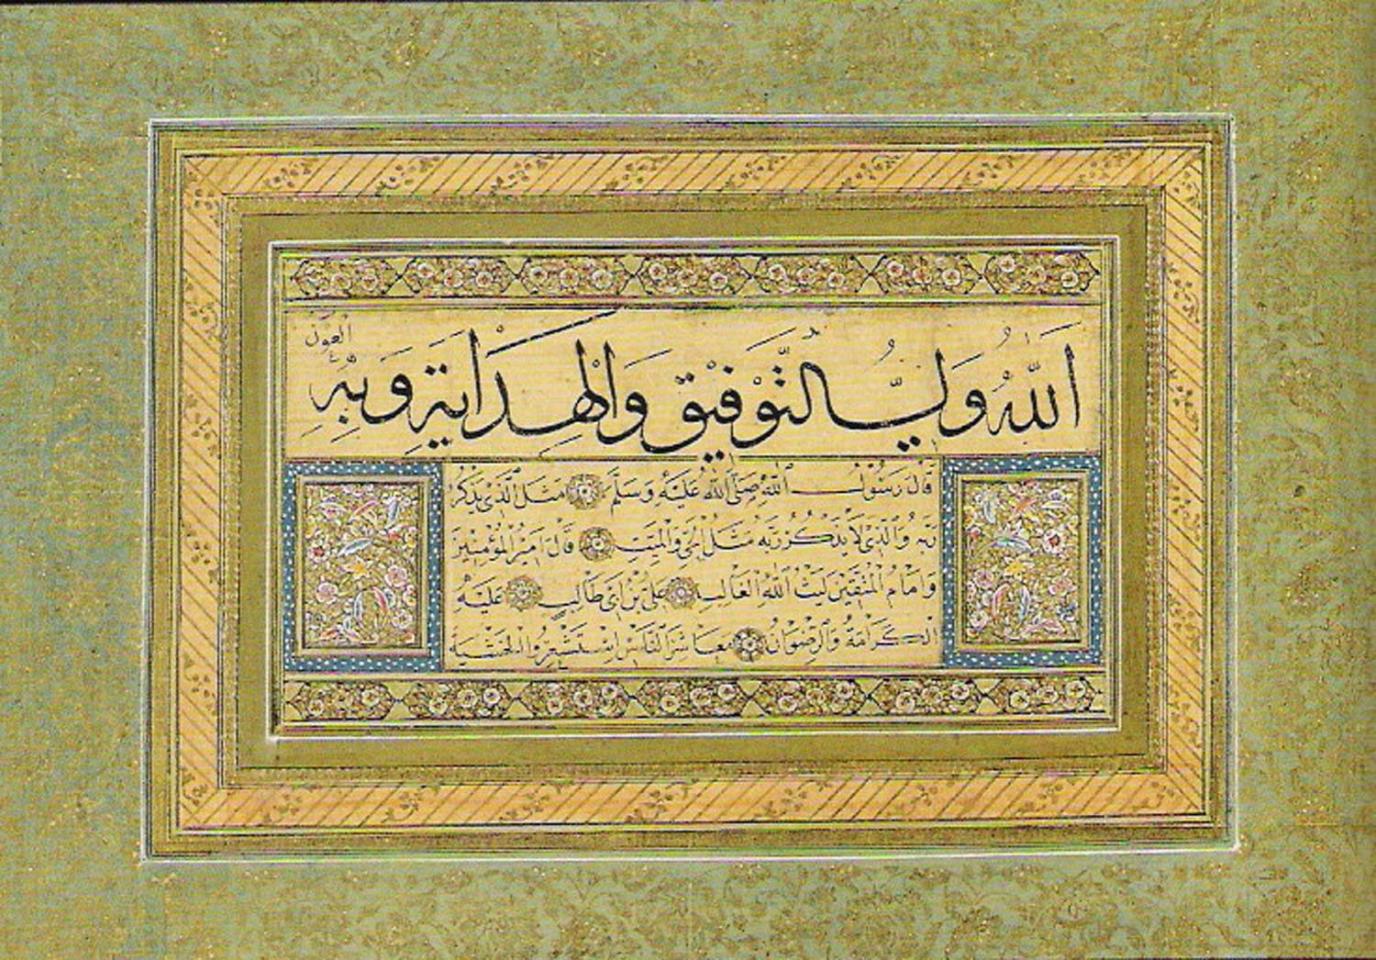 اَللّٰهُ وَلِيُّ التَّوْفِيْقِ وَالْهِدَايَةِ وَبِهِ
العون
قَالَ رَسُولُ اللّٰهِ صَلَّى اللّٰهُ عَلَيْهِ وَسَلَّمَ مَثَلُ الَّذِى يَذْكُرُ
رَبَّهُ وَالَّذِى لَا يَذْكُرُ رَبَّهُ مَثَلُ الْحَىِّ وَالْمَيِّتِ قَالَ اَمِيرُ الْمُؤْمِنِينَ
وَاِمَامُ الْمُتَّقِينَ لَيْثُ اللّٰهِ الْغَالِبِ عَلِىُّ بْنُ اَبِى طَالِبٍ عَلَيْهِ
الْكَرَامَةُ وَالرِّضْوَانُ مَعَاشِرَ النَّاسِ اِسْتَشْعِرُوا الْخَشْيَةَ